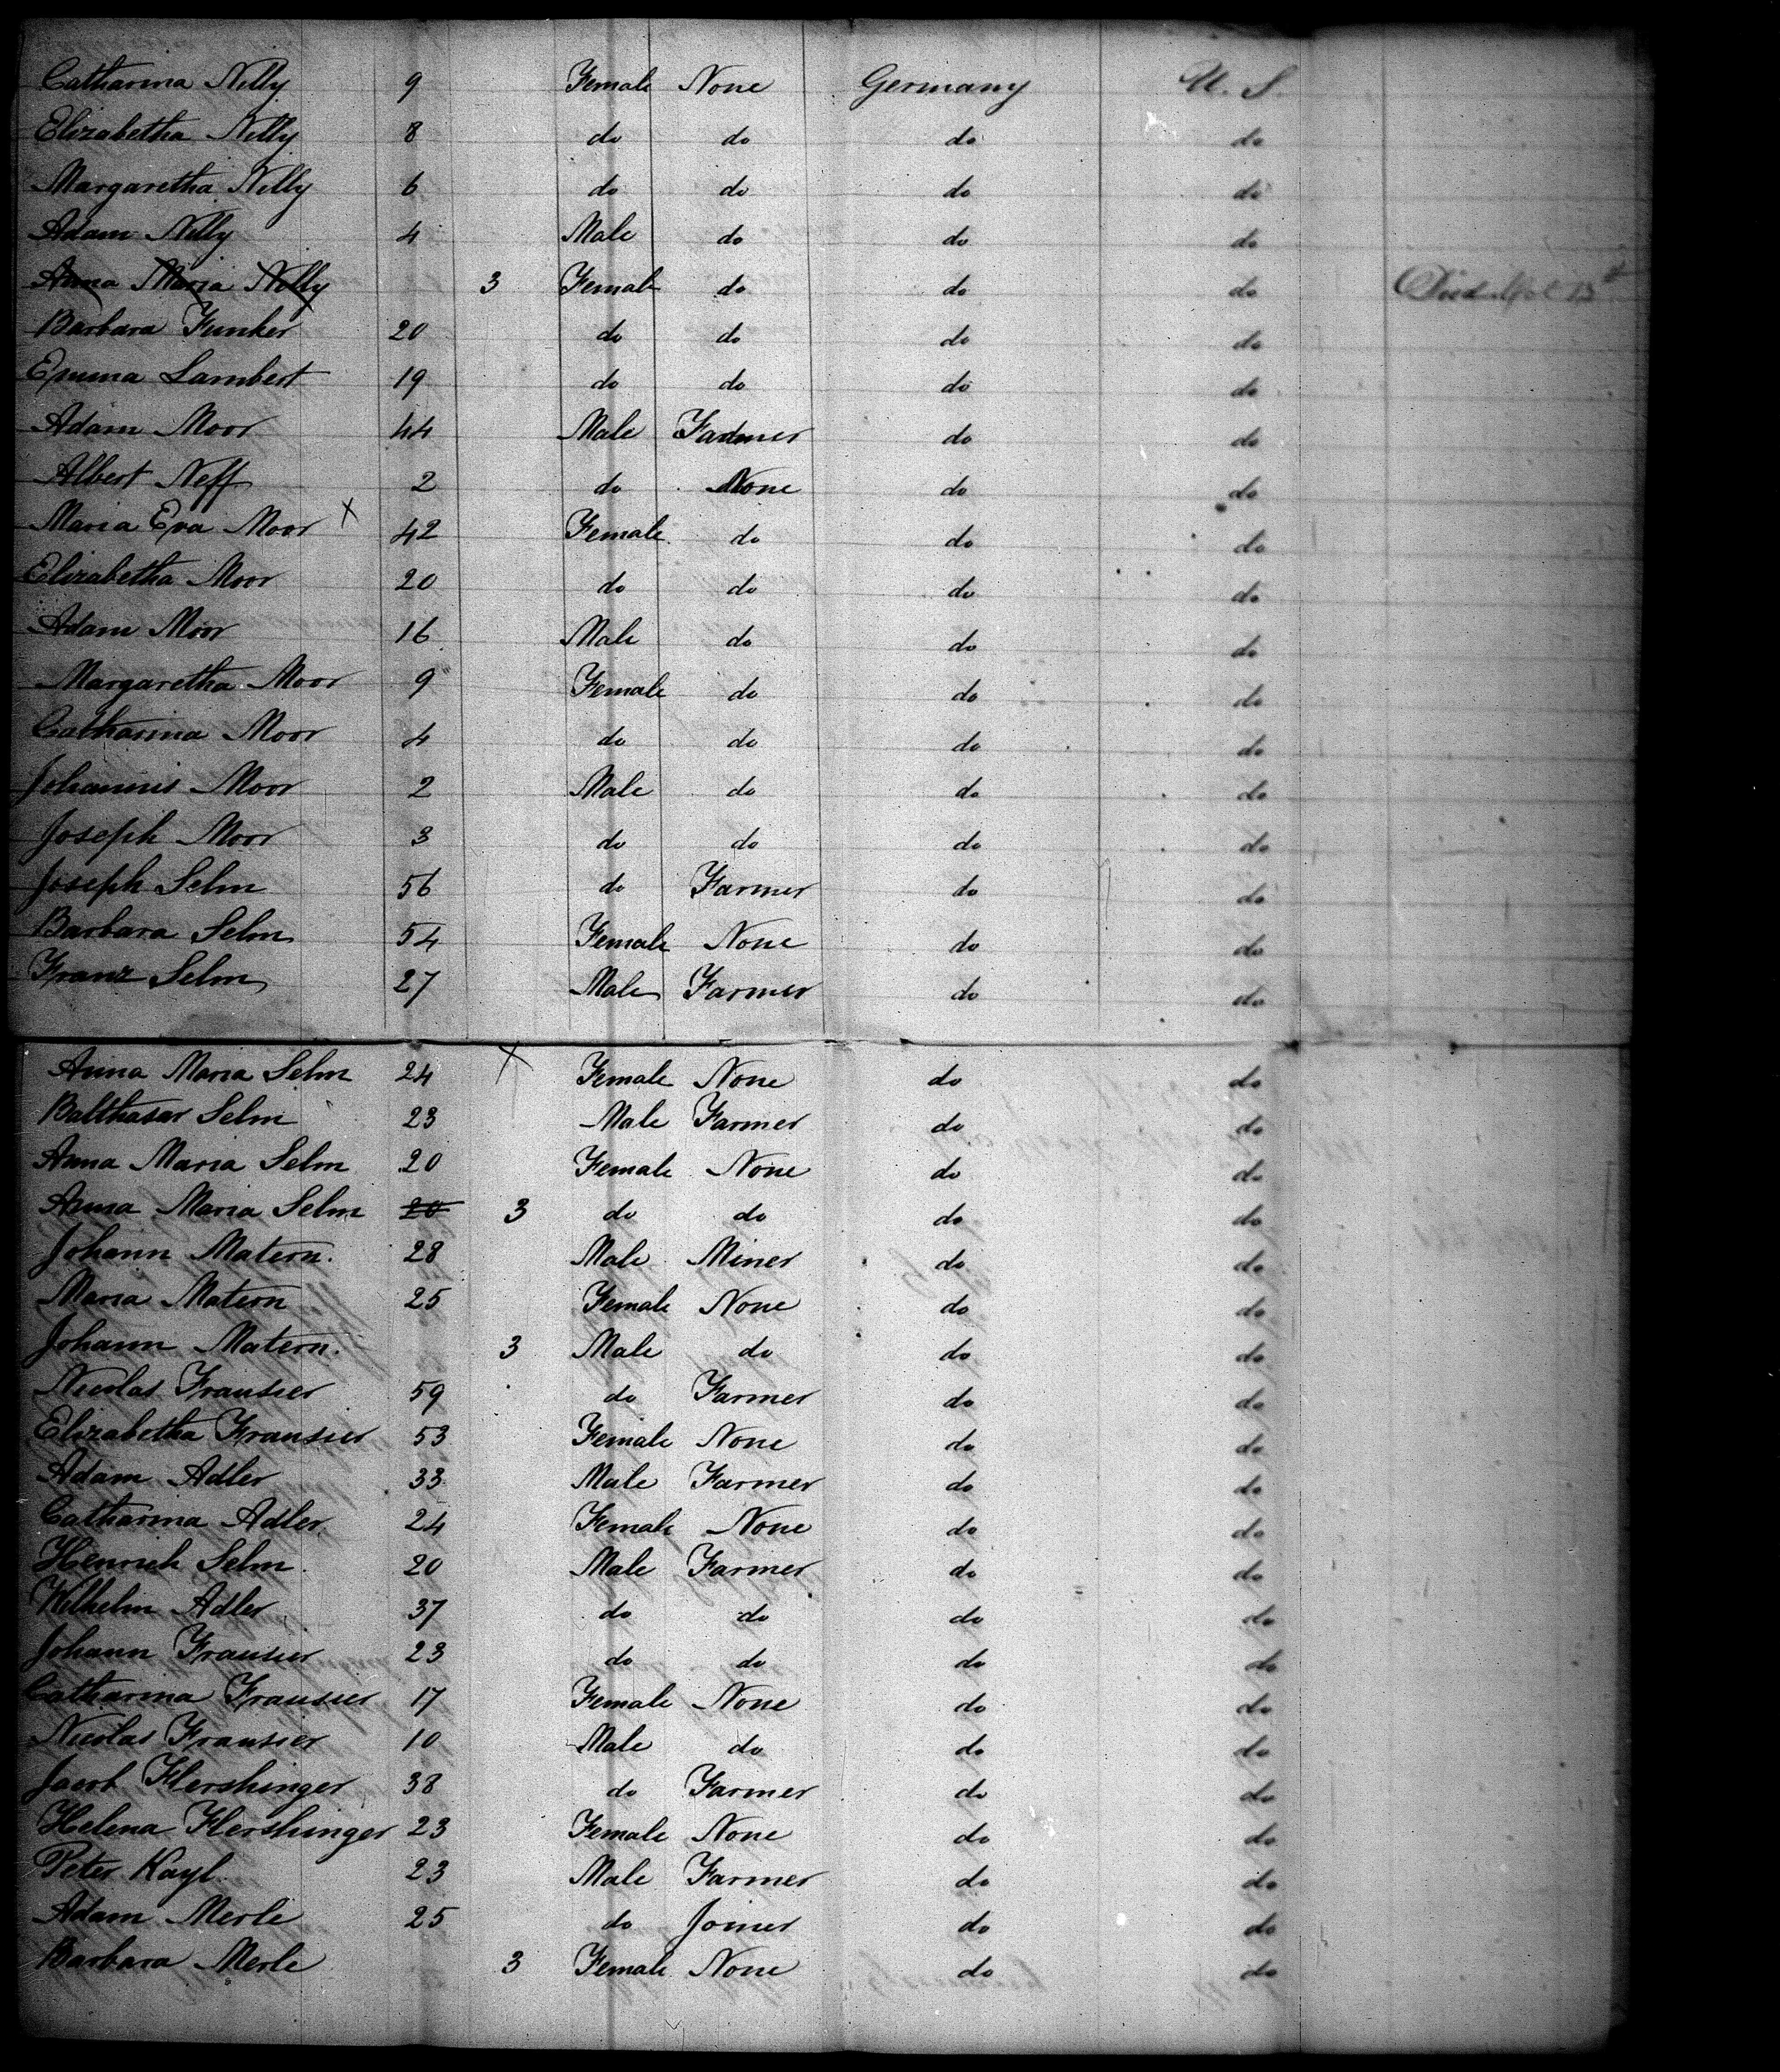 Catharina Nelly 9 Female None Germany U. S.
Elizabetha Nelly 8 do do do do
Margaretha Nelly 6 do do do do
Adam Nelly 4 Male do do do
Anna Maria Nelly 3 Female do do do Died 13
Barbara Funker 20 do do do do
Emma Lambert 19 do do do do
Adam Moor 44 Male Farmer do do
Albert Neff 2 do None do do
Maria Eva Moor X 42 Female do do do
Elizabetha Moor 20 do do do do
Adam Moor 16 Male do do do
Margaretha Moor 9 Female do do do
Catharina Moor 4 do do do do
Johannis Moor 2 Male do do do
Joseph Moor 3 do do do do
Joseph Selm 56 do Farmer do do
Barbara Selm 54 Female None do do
Franz Selm 27 Male Farmer do do
Anna Maria Selm 24 X Female None do do
Balthasar Selm 23 Male Farmer do do
Anna Maria Selm 20 Female None do do
Anna Maria Selm 20 3 do do do do
Johann Matern. 28 Male Miner do do
Maria Matern 25 Female None do do
Johann Matern. 3 Male do do do
Nicolas Frausier 59 do Farmer do do
Elizabetha Frausier 53 Female None do do
Adam Adler 33 Male Farmer do do
Catharina Adler 24 Female None do do
Henrich Selm 20 Male Farmer do do
Wilhelm Adler 37 do do do do
Johann Frausier 23 do do do do
Catharina Frausier 17 Female None do do
Nicolas Frausier 10 Male do do do
Jacob Flershinger 38 do Farmer do do
Helena Flershinger 23 Female None do do
Peter Kayl 23 Male Farmer do do
Adam Merle 25 do Joiner do do
Barbara Merle 3 Female None do do